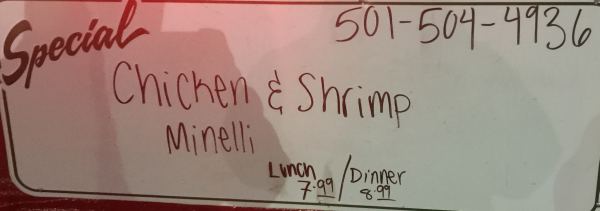 Special
501-504-4936
Chicken & Shrimp
Minelli
Lunch / Dinner
7.99 8.99